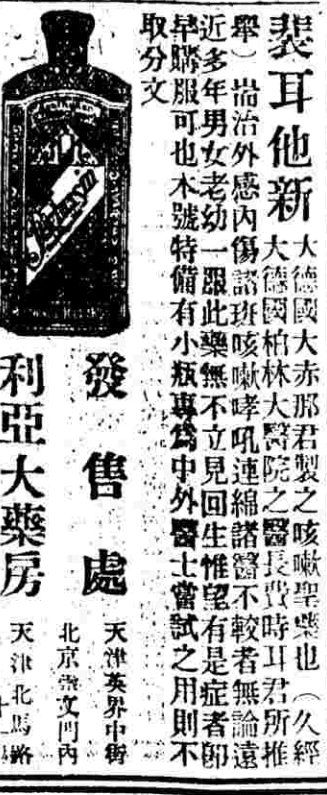 裴耳他新
大德國大赤那君製之咳嗽聖藥也(久經
大德國柏林大醫院之醫長費時耳君所推
舉)耑治外感內傷諸班咳嗽哮吼連綿諸醫不較者無論遠
近多年男女老幼一服此藥無不立見回生惟望有是症者卽
早購服可也本號特備有小瓶專爲中外醫士嘗試之用則不
取分文
發售處
天津英界中街
北京崇文門內
利亞大藥房
天津北馬路